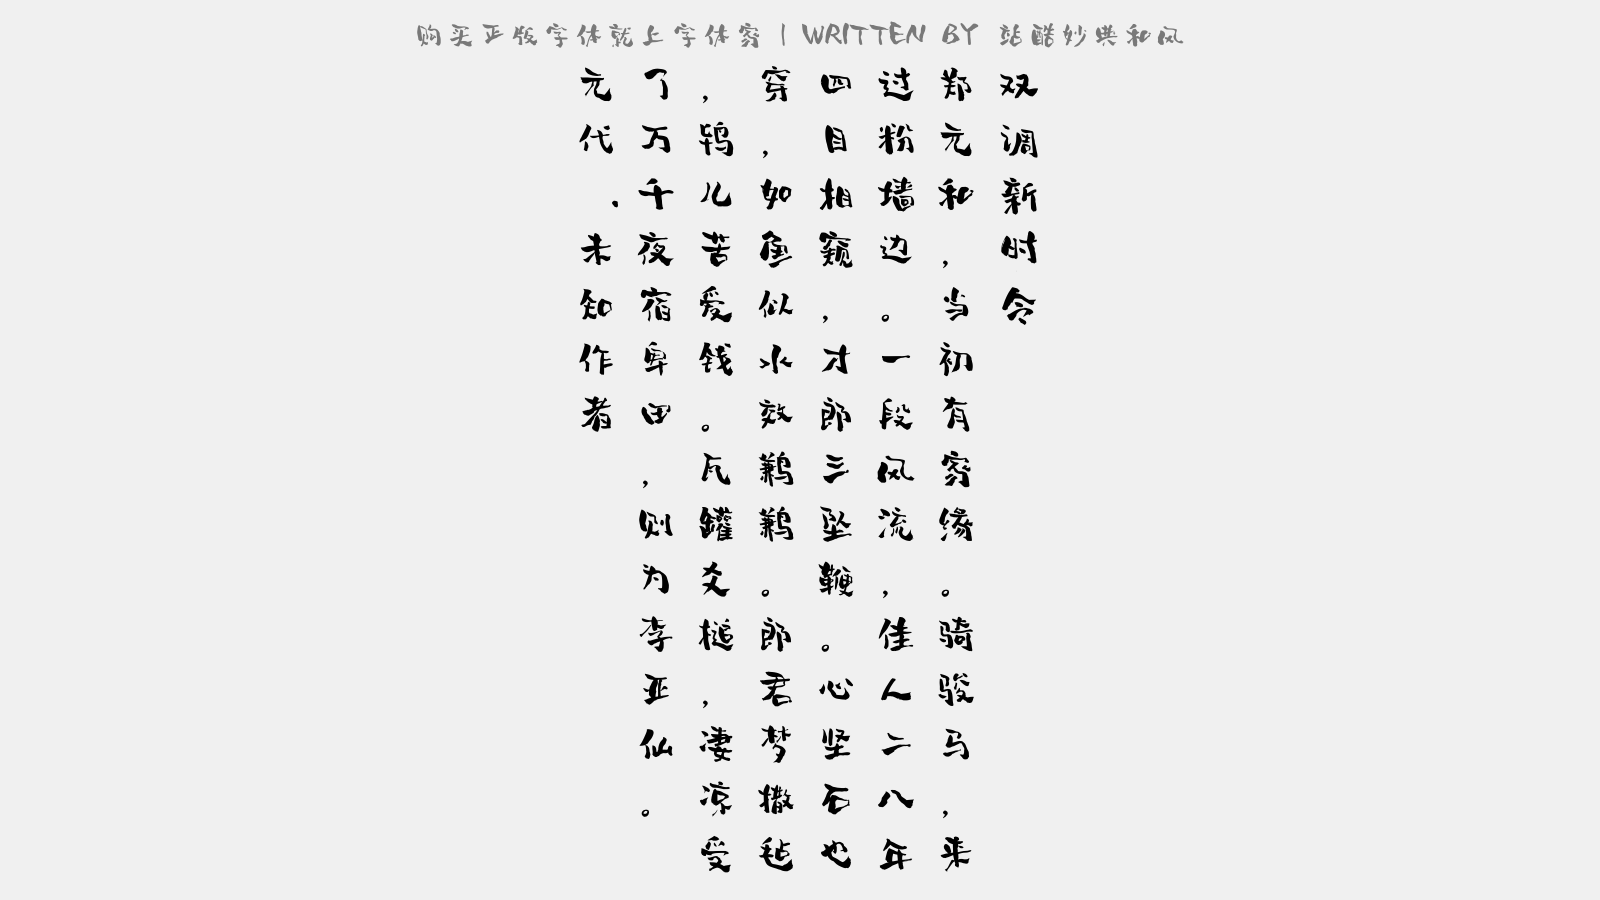 购买正版字体就上字体家 | WRITTEN BY 站酷妙典和风
双调新时令
郑元和，当初有家缘。骑骏马，来
过粉墙边。一段风流，佳人二八年
四目相窥，才郎三坠鞭。心坚石也
穿，如鱼似水效鹣鹣。郎君梦撒毡
，鸨儿苦爱钱。瓦罐爻槌，凄凉受
了万千夜宿卑田，则为李亚仙。
元代.未知作者